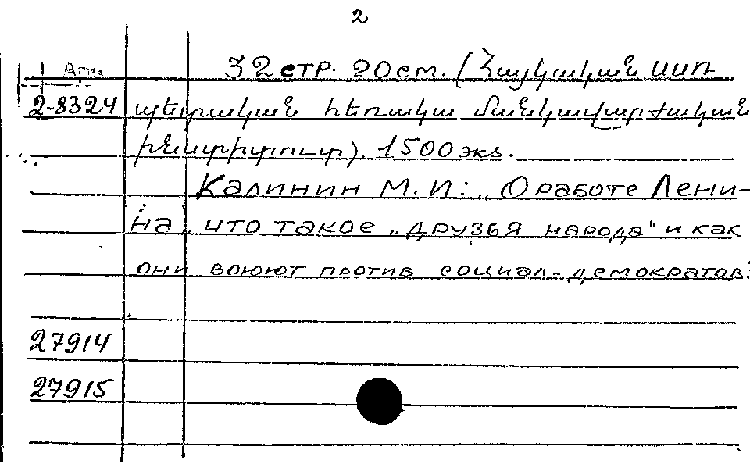 2
Арм. 32 стр. 20 см. (Հայկական ՍՍՌ
2-8324 պետական հեռակա մանկավարժական
ինստիտուտ). 1500 экз.
Калинин М. И: „О работе Лени-
на „что такое „друзья народа" и как
они воюют против социал-демократов?
27914
27915